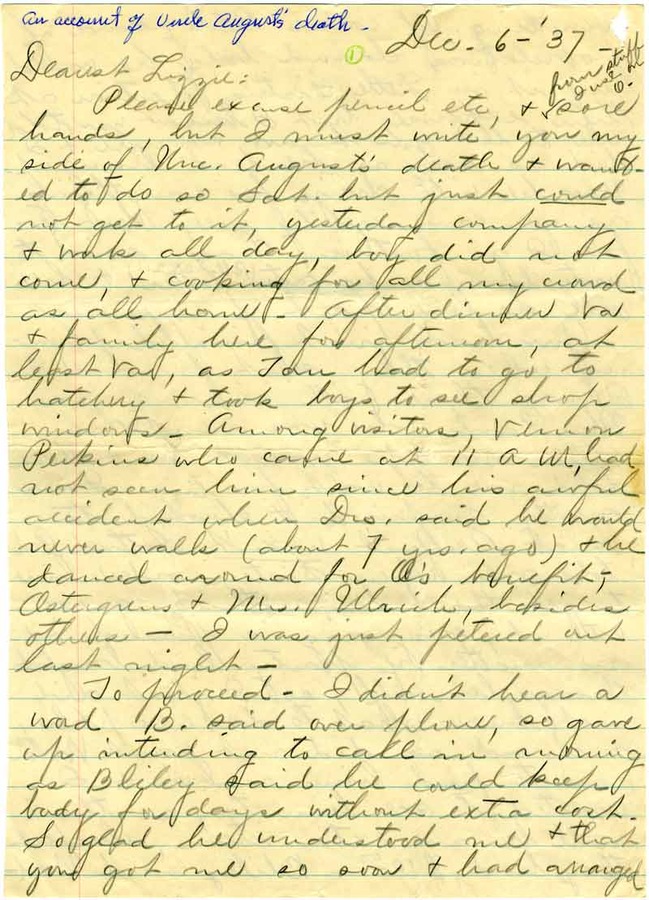 An account of Uncle August's death.
① Dec. 6-'37-
from stuff
I use
Dearest Lizzie:
Please excuse pencil etc, + sore
hands, but I must write you my
side of Unc. August's death + want-
ed to do so Sat. but just could
not get to it, yesterday company
+ work all day, boy did not
come, + cooking for all my crowd
as all home - After dinner Va
+ family here for afternoon, at
least Va, as Tom had to go to
hatchery + took boys to see shop
windows - Among visitors, Vernon
Perkins who came at 11 A M, had
not seen him since his awful
accident when Drs. said he would
never walk (about 7 yrs. ago) + he
danced around for O's benefit;
Ostergrens + Mrs. Ulrich, besides
others - I was just petered out
last night -
To proceed - I didn't hear a
word B. said over phone, so gave
up intending to call in morning
as Bliley said he could keep
body for days without extra cost.
So glad he understood me + that
you got me so soon + had arranged